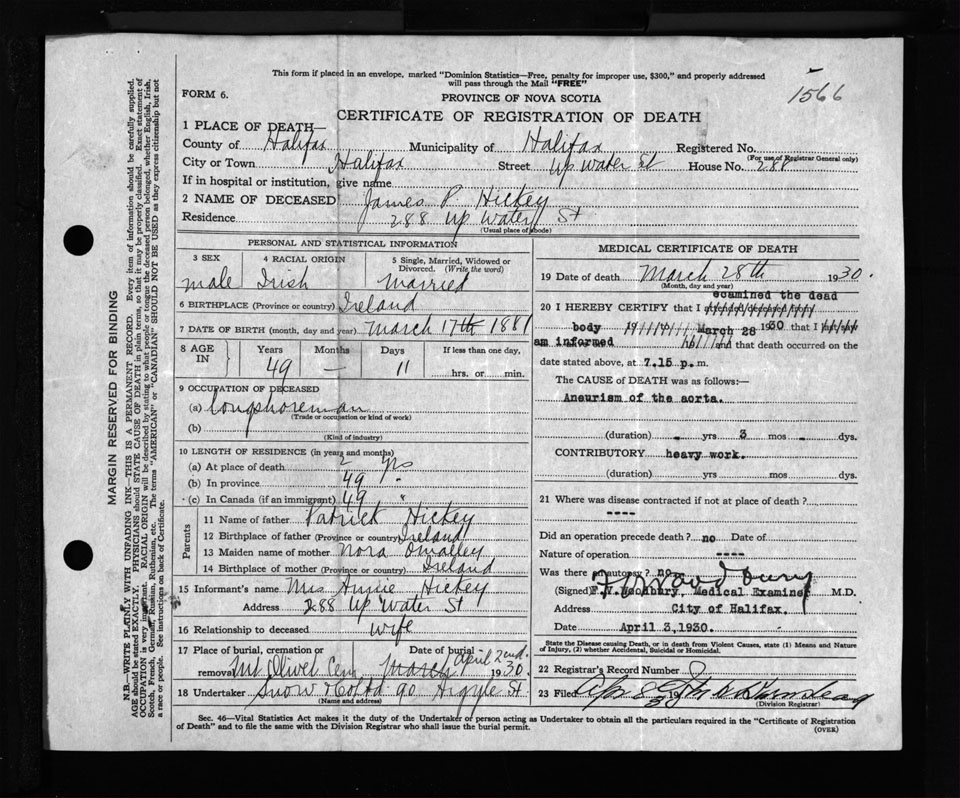 This form if placed in an envelope, marked "Dominion Statistics—Free, penalty for improper use, $300," and properly addressed
will pass through the Mail "FREE"
1566
FORM 6.
PROVINCE OF NOVA SCOTIA
CERTIFICATE OF REGISTRATION OF DEATH
1 PLACE OF DEATH—
County of Halifax Municipality of Halifax Registered No.
(For use of Registrar General only)
City or Town Halifax Street Up Water St House No. 288
If in hospital or institution, give name
2 NAME OF DECEASED James P. Hickey
Residence 288 Up Water St
(Usual place of abode)
PERSONAL AND STATISTICAL INFORMATION
3 SEX 4 RACIAL ORIGIN 5 Single, Married, Widowed or
Divorced. (Write the word)
male Irish Married
6 BIRTHPLACE (Province or country) Ireland
7 DATE OF BIRTH (month, day and year) March 17th 1881
8 AGE IN Years Months Days If less than one day,
49 — 11 hrs. or min.
9 OCCUPATION OF DECEASED
(a) Longshoreman
(Trade or occupation or kind of work)
(b)
(Kind of industry)
10 LENGTH OF RESIDENCE (in years and months)
(a) At place of death 2 yrs
(b) In province 49 "
(c) In Canada (if an immigrant) 49 "
Parents
11 Name of father Patrick Hickey
12 Birthplace of father (Province or country) Ireland
13 Maiden name of mother Nora Omalley
14 Birthplace of mother (Province or country) Ireland
15 Informant's name Mrs Annie Hickey
Address 288 Up Water St
16 Relationship to deceased wife
17 Place of burial, cremation or Date of burial
removal Mt Olivet Cem March April 2nd 1930
18 Undertaker Snow & Co Ltd 90 Argyle St
(Name and address)
MEDICAL CERTIFICATE OF DEATH
19 Date of death March 28th 1930.
(Month, day and year)
examined the dead
20 I HEREBY CERTIFY that I
body March 28 1930 that I
am informed and that death occurred on the
date stated above, at 7.15 p. m.
The CAUSE of DEATH was as follows:—
Aneurism of the aorta.
(duration) - yrs 3 mos - dys.
CONTRIBUTORY heavy work.
(duration) yrs mos dys.
21 Where was disease contracted if not at place of death?
----
Did an operation precede death? no Date of
Nature of operation ----
Was there an autopsy? no
(Signed) F.V. Woodbury, Medical Examiner M.D.
F V Woodbury
Address City of Halifax.
Date April 3,1930.
State the Disease causing Death, or in death from Violent Causes, state (1) Means and Nature
of Injury, (2) whether Accidental, Suicidal or Homicidal.
22 Registrar's Record Number
23 Filed
(Division Registrar)
Sec. 46—Vital Statistics Act makes it the duty of the Undertaker or person acting as Undertaker to obtain all the particulars required in the "Certificate of Registration
of Death" and to file the same with the Division Registrar who shall issue the burial permit.
(OVER)
MARGIN RESERVED FOR BINDING
N.B.—WRITE PLAINLY WITH UNFADING INK—THIS IS A PERMANENT RECORD. Every item of information should be carefully supplied.
AGE should be stated EXACTLY. PHYSICIANS should STATE CAUSE OF DEATH in plain terms, so that it may be properly classified. Exact statement of
OCCUPATION is very important. RACIAL ORIGIN will be described by stating to what people or tongue the deceased person belonged, whether English, Irish,
Scotch, French, German, Russian, Ruthenian, etc. The terms "AMERICAN" or "CANADIAN" SHOULD NOT BE USED as they express citizenship but not
a race or people. See instructions on back of Certificate.